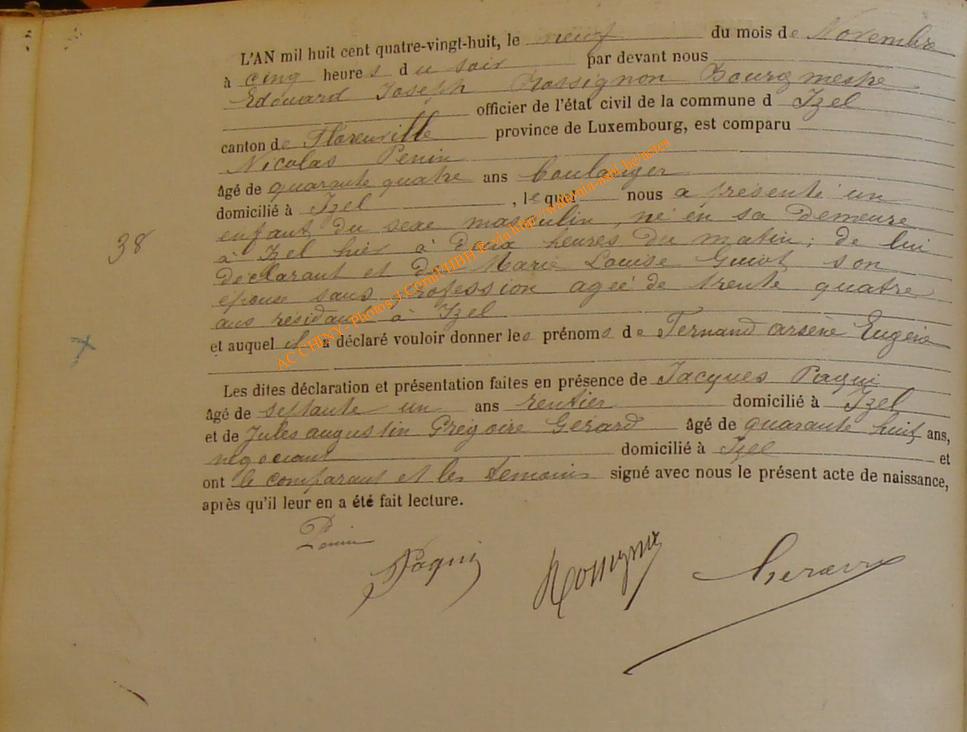 L'AN mil huit cent quatre-vingt-huit, le neuf du mois de Novembre
à cinq heures du soir par devant nous
Edouard Joseph Rossignon Bourgmestre
officier de l'état civil de la commune d Izel
canton de Florenville province de Luxembourg, est comparu
Nicolas Penin
âgé de quarante quatre ans boulanger
domicilié à Izel, lequel nous a présenté un
enfant du sexe masculin né en sa demeure
à Izel hier à deux heures du matin; de lui
déclarant et de Marie Louise Guiot son
épouse sans profession agée de trente quatre
ans résidant à Izel
et auquel il a déclaré vouloir donner les prénoms de Fernand arsène Eugène
Les dites déclaration et présentation faites en présence de Jacques Paqui
âgé de septante un ans rentier domicilié à Izel
et de Jules augustin Grégoire Gerard âgé de quarante huit ans,
négociant domicilié à Izel et
ont le comparant et les témoins signé avec nous le présent acte de naissance,
après qu'il leur en a été fait lecture.
38
x
Penin
Paqui
Rossignon
Gerard
AC CHINY - Photos J Cerni